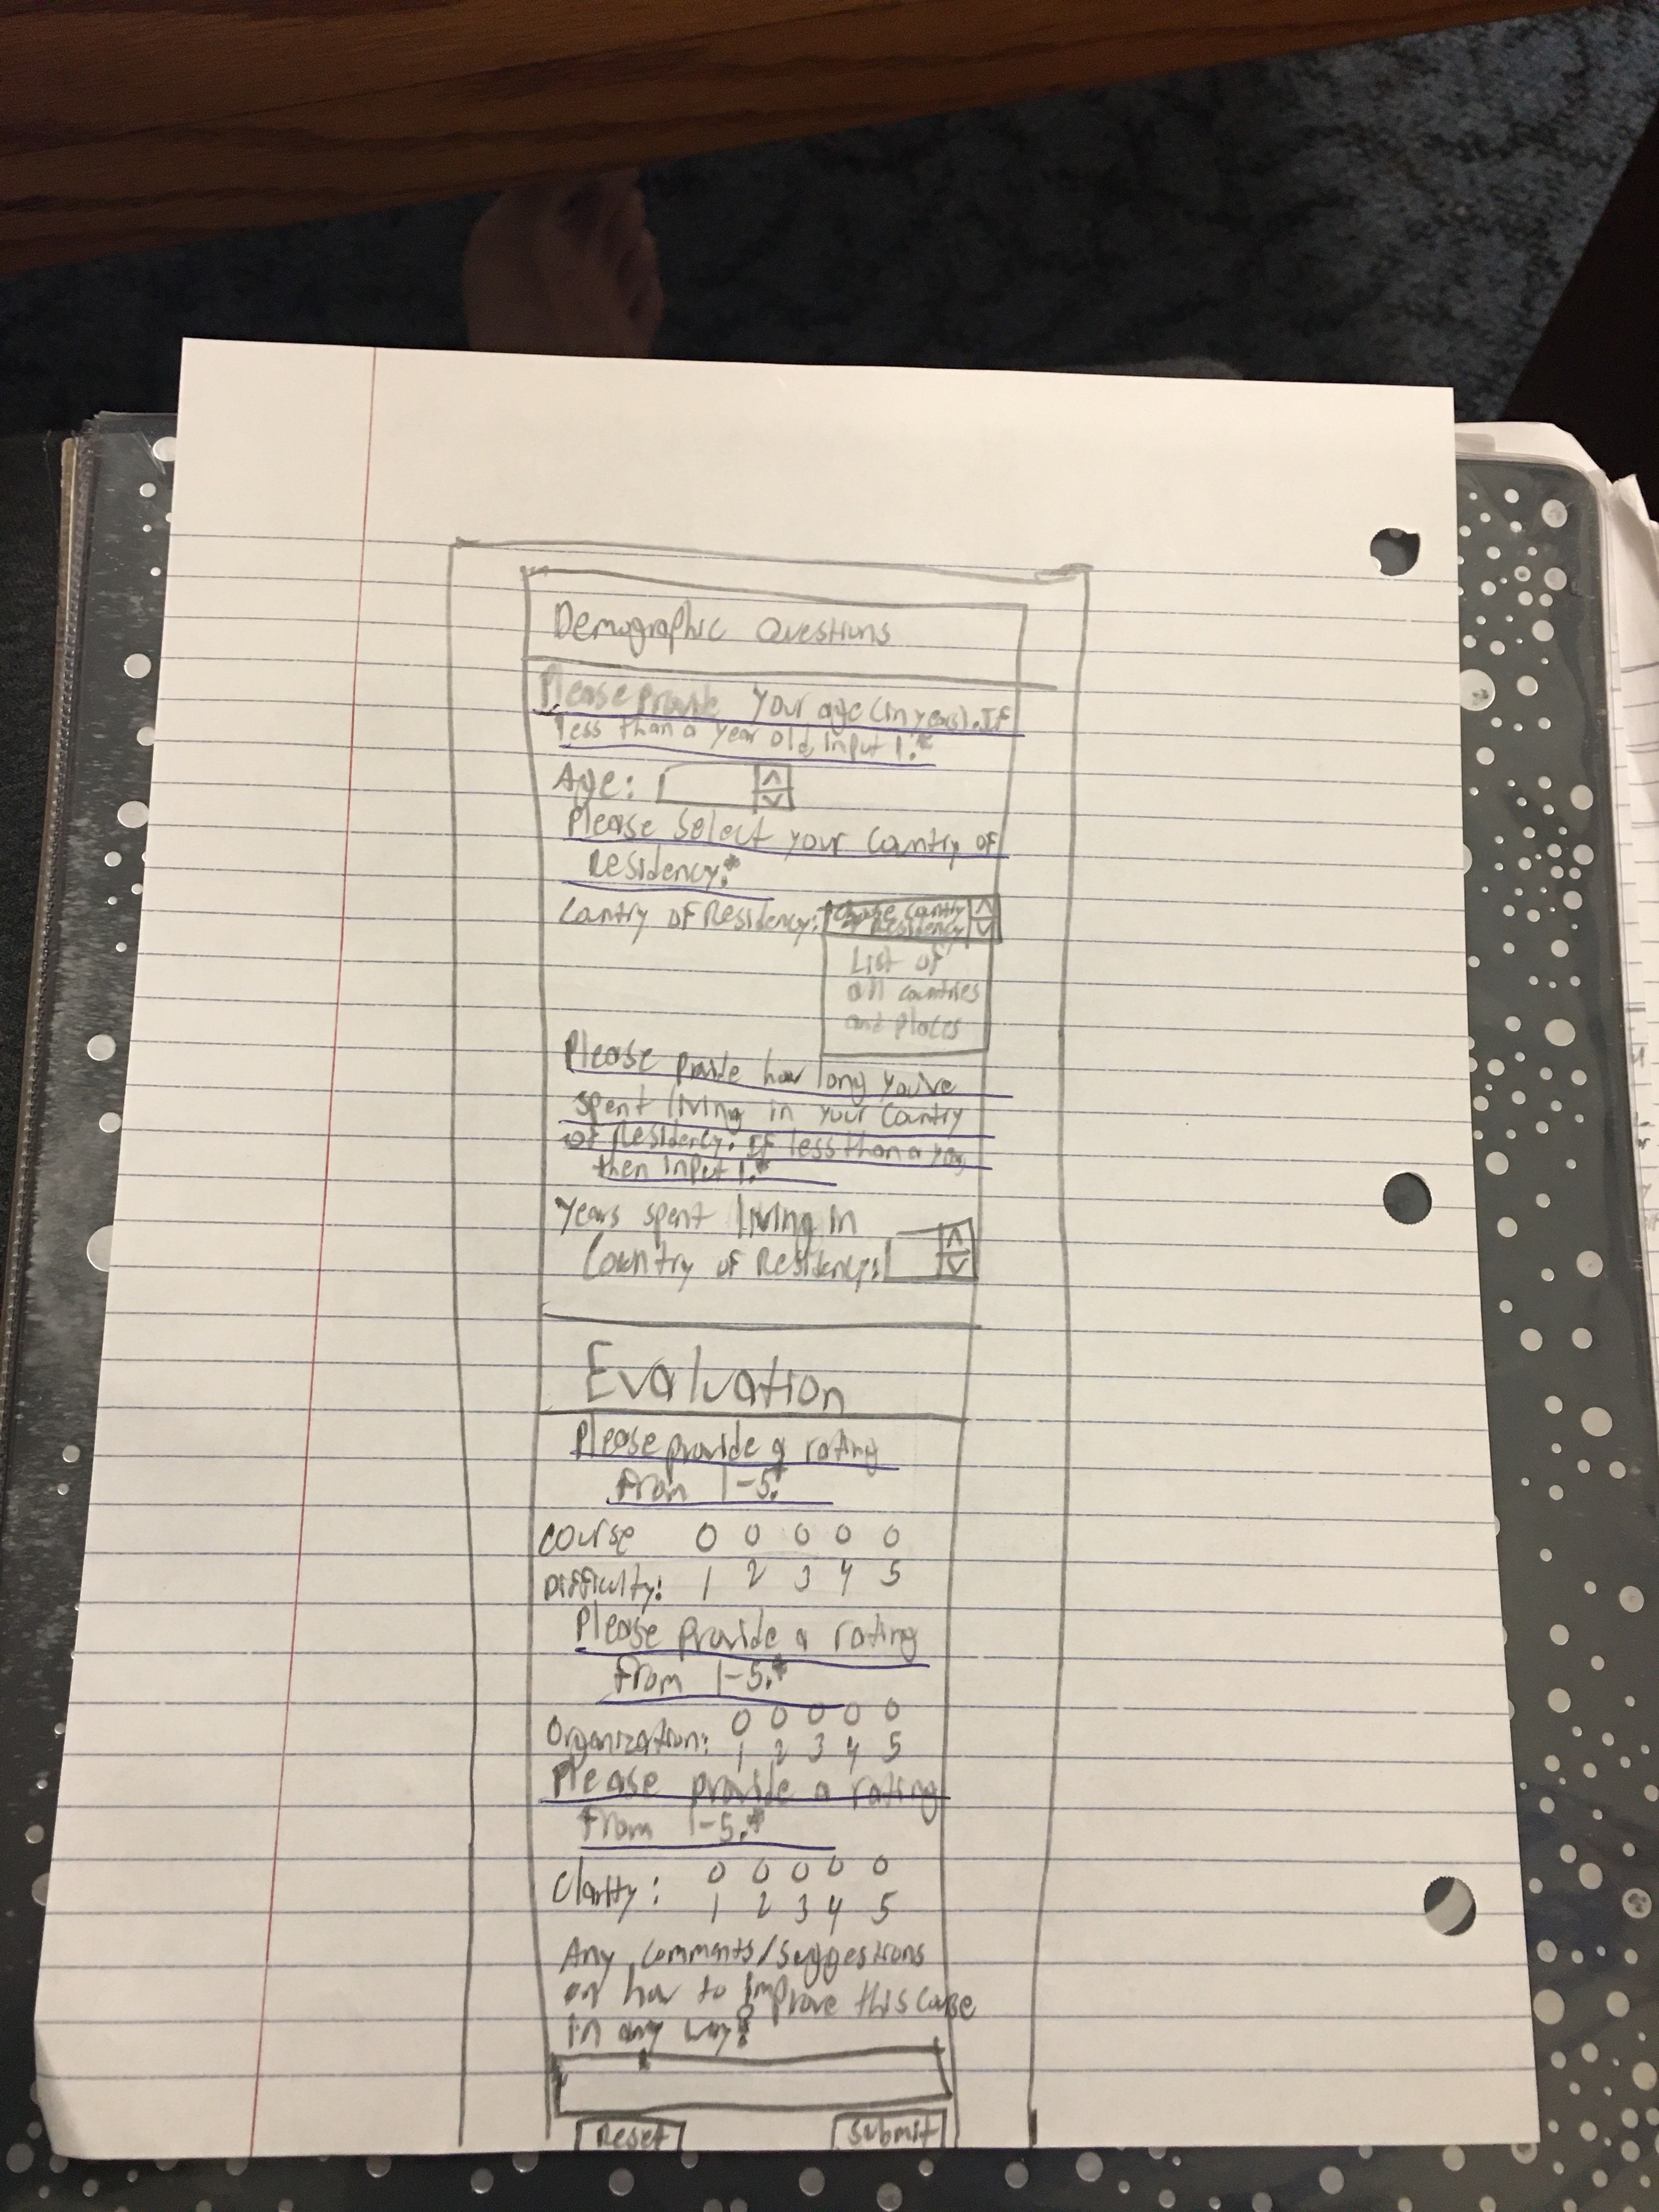 Demographic Questions
Please provide your age (in years). If
less than a year old, input 1.*
Age:
Please select your Country of
Residency.*
Country of Residency: Choose Country
of Residency
List of
all countries
and places
Please provide how long you've
spent living in your Country
of Residency. If less than a year,
then input 1.*
Years spent living in
Country of Residency:
Evaluation
Please provide a rating
from 1-5.*
course
Difficulty: 1 2 3 4 5
Please provide a rating
from 1-5.*
Organization: 1 2 3 4 5
Please provide a rating
from 1-5.*
Clarity:
1 2 3 4 5
Any comments/suggestions
on how to improve this course
in any way?
Reset Submit